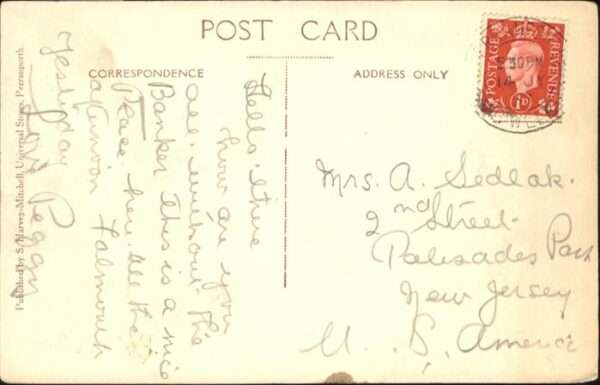 POST CARD
CORRESPONDENCE
ADDRESS ONLY
POSTAGE
REVENUE
1D
30PM
Hello there
how are you
all. without the
Banker this is a nice
Place here. all the
afternoon Falmouth
Yesterday
Love Peggy
Mrs. A. Sedlak.
2nd Street
Palisades Park
New Jersey
U. S. America
Published by S. Harvey-Mitchell, Universal Stores, Perranporth.